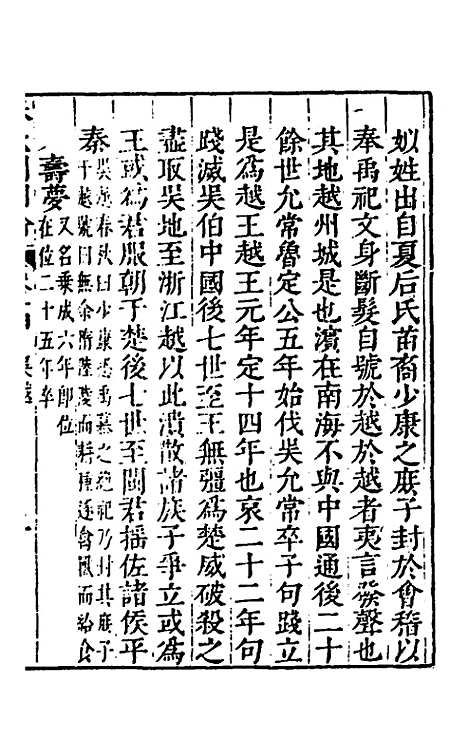 姒姓出自夏后氏苗裔少康之庶子封於會稽以
奉禹祀文身斷髮自號於越於越者夷言發聲也
其地越州城是也濱在南海不與中國通後二十
餘世允常魯定公五年始伐吳允常卒子句踐立
是爲越王越王元年定十四年也哀二十二年句
踐滅吳伯中國後七世至王無疆爲楚威破殺之
盡取吳地至浙江越以此潰散諸族子爭立或爲
王或爲君服朝于楚後七世至閩君揺佐諸侯平
秦
吳越春秋曰少康恐禹墓之絕祀乃封其庶子
于越號曰無余隨陵陸而耕種逐禽鹿而給食
壽夢
又名乗成六年即位
在位二十五年卒